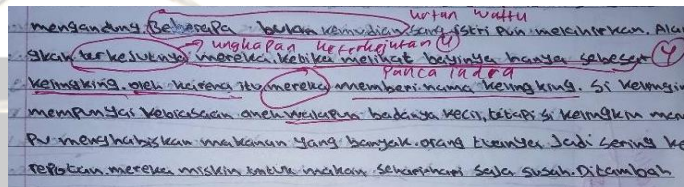 urtan waktu
mengandung. Beberapa bulan kemudian sang istri pun melahirkan. Ala
ungkapan keterkejutan 4
gkah terkejutnya mereka ketika melihat bayinya hanya sebesar 4
panca indra
kelingking. oleh karena itu mereka memberi nama kelingking. Si kelingki
mempunyai kebiasaan aneh walapun badanya kecil, tetapi si kelingkin mam
pu menghabiskan makanan yang banyak. orang tuanya Jadi sering ke
repotan. mereka miskin untuk makan sehari-hari saja susah. Ditambah